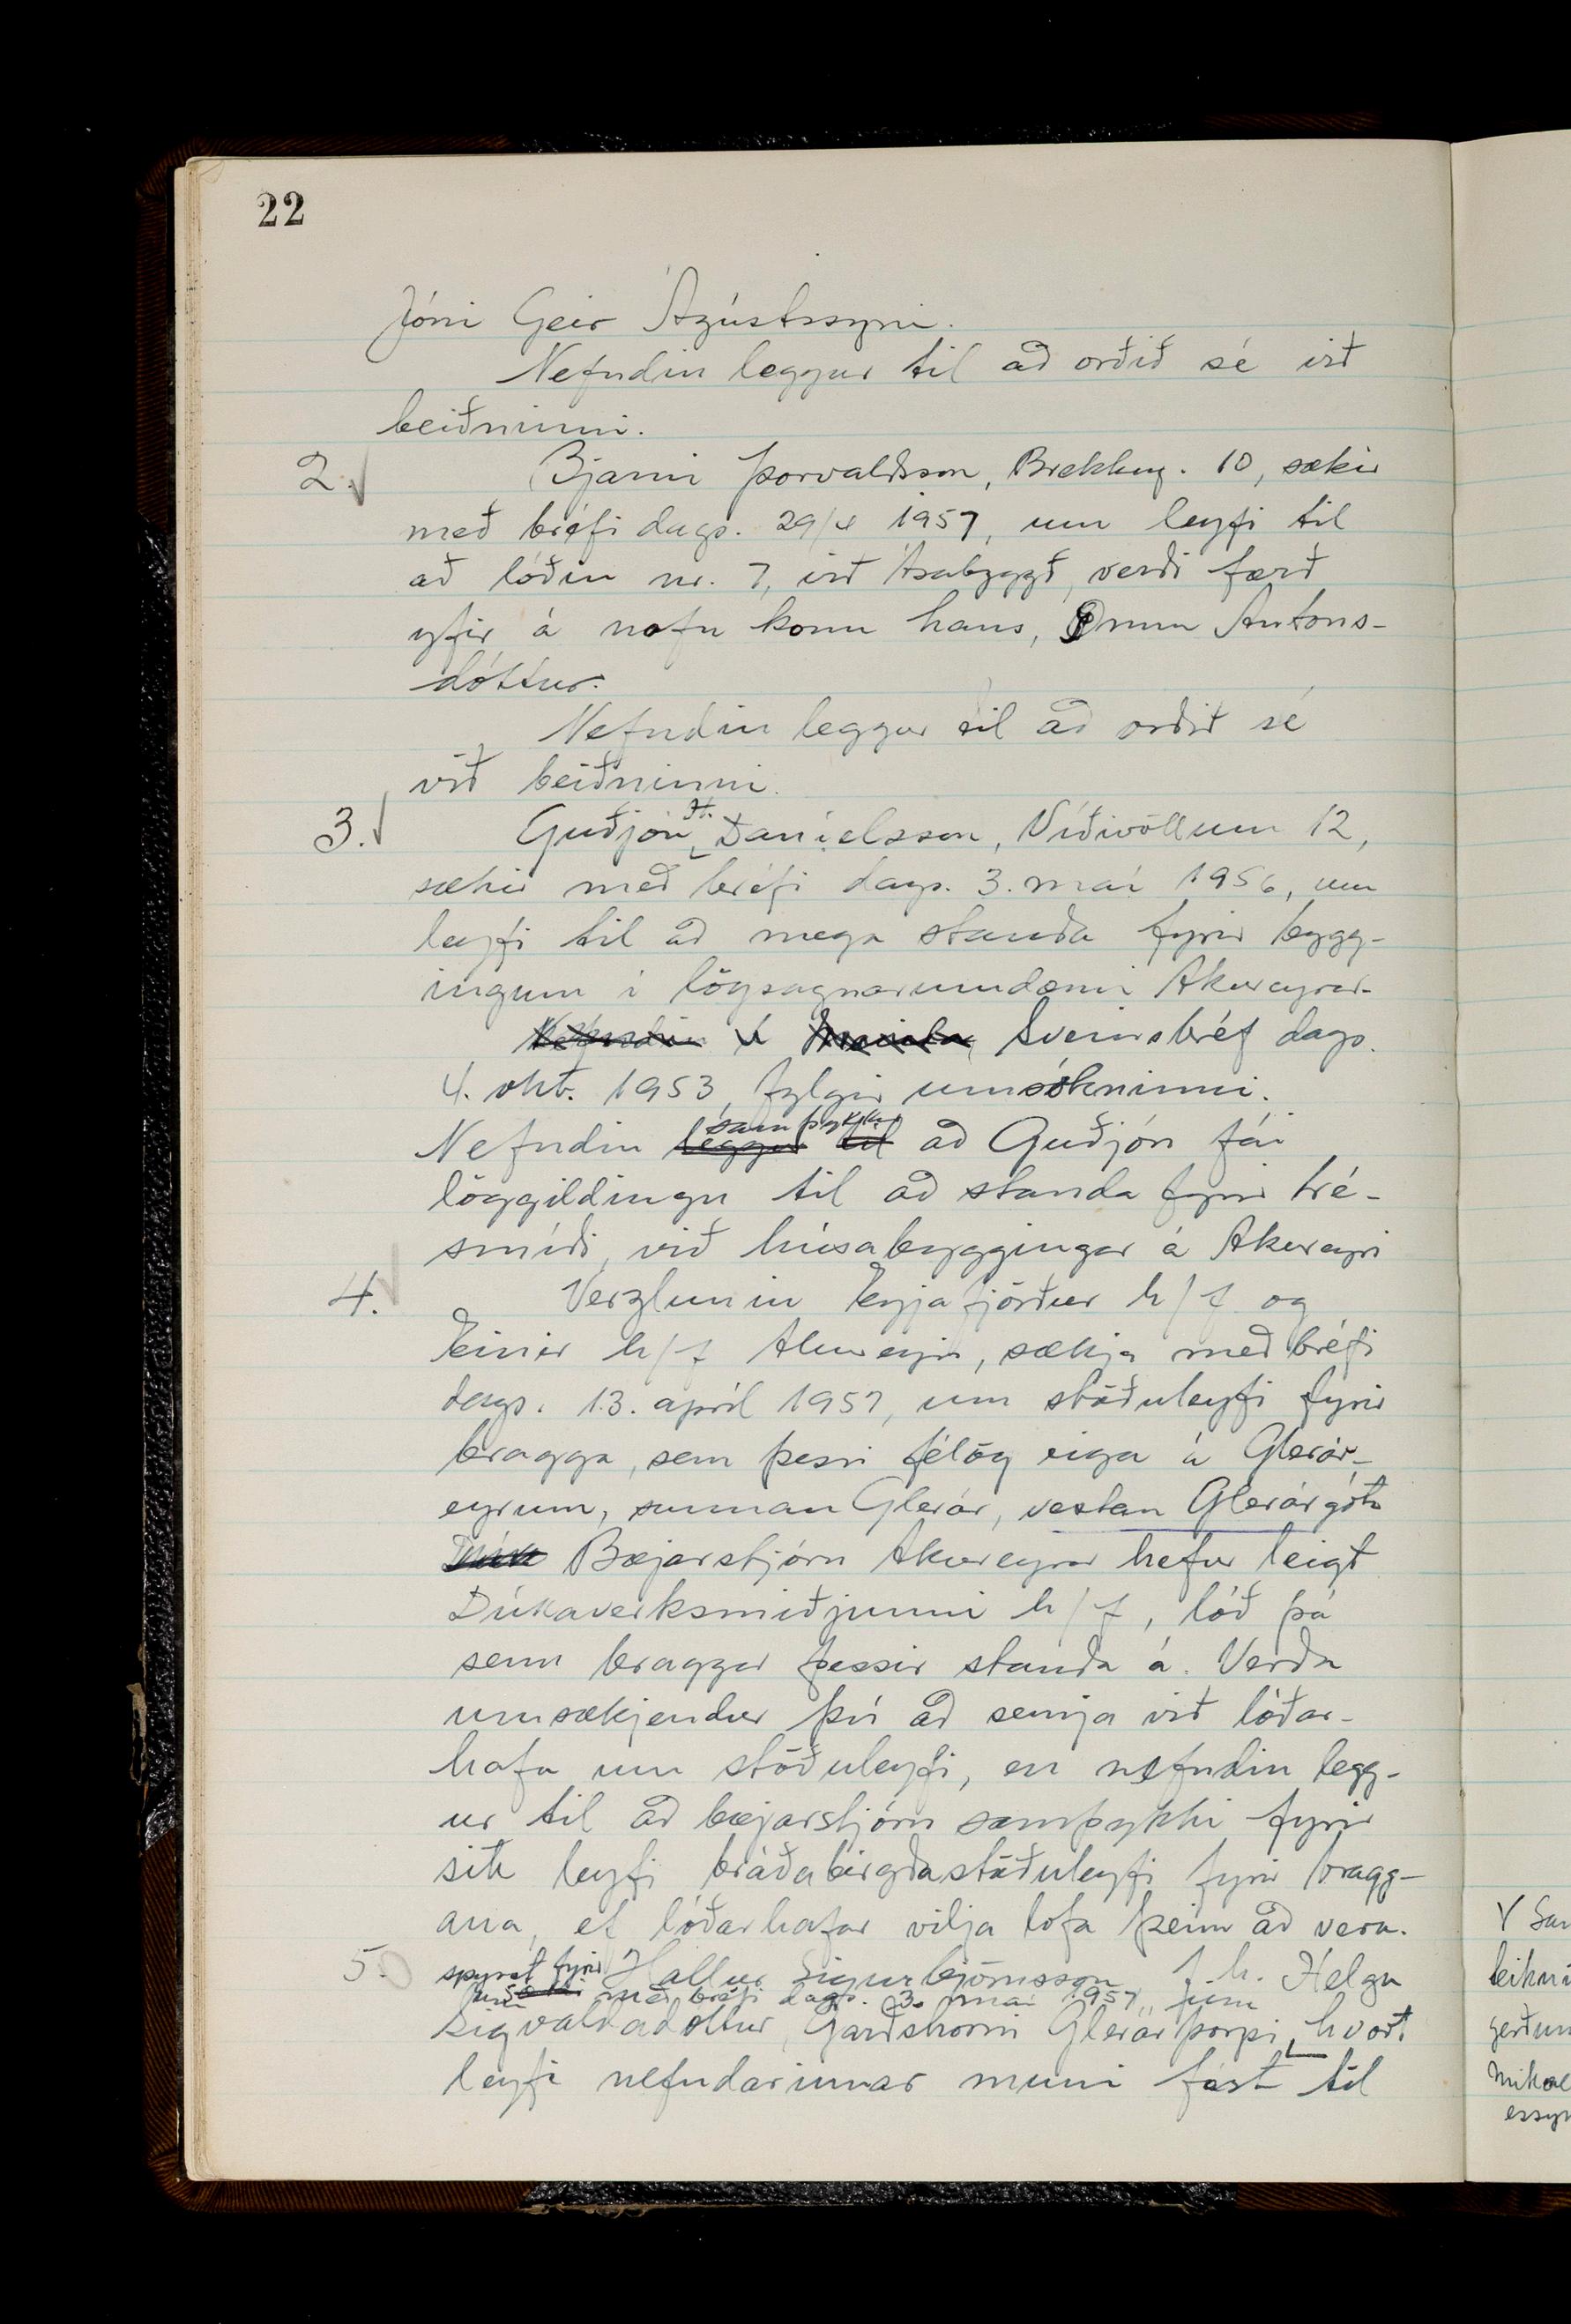 22
Jóni Geir Ágústssyni.
Nefndin leggur til að orðið sé við
beiðninni.
2. Bjarni Þorvaldsson, Brekkug. 10, sækir
með bréfi dags. 29/4 1957, um leyfi til
að lóðin nr. 7, við Ásabyggð, verði færð
yfir á nafn konu hans, Önnu Antons-
dóttur.
Nefndin leggur til að orðið sé
við beiðninni.
3. Guðjón H. Daníelsson, Víðivöllum 12,
sækir með bréfi dags. 3. maí 1956, um
leyfi til að mega standa fyrir bygg-
ingum í lögsagnarumdæmi Akureyrar.
Nefndin Sveinsbréf dags.
4. okt. 1953, fylgir umsókninni.
samþykkir
Nefndin leggur til að Guðjón fái
löggildingu til að standa fyrir tré-
smíði, við húsabyggingar á Akureyri
4. Verzlunin Eyjafjörður h/f og
Einir h/f Akureyri, sækja með bréfi
dags. 13. apríl 1957, um stöðuleyfi fyrir
bragga, sem þessi félög eiga á Glerár-
eyrum, sunnan Glerár, vestan Glerárgötu
Bæjarstjórn Akureyrar hefur leigt
Dúkaverksmiðjunni h/f, lóð þá
sem braggar þessir standa á. Verða
umsækjendur því að semja við lóðar-
hafa um stöðuleyfi, en nefndin legg-
ur til að bæjarstjórn samþykki fyrir
sitt leyfi bráðabirgðastöðuleyfi fyrir bragg-
ana, ef lóðarhafar vilja lofa þeim að vera.
5. spyrst fyrir Hallur Sigurbjörnsson, f.h. Helgu
um sækir með bréfi dags. 3. maí 1957, um
Sigvaldadóttur, Garðshorni Glerárþorpi, hvort
leyfi nefndarinnar muni fást til